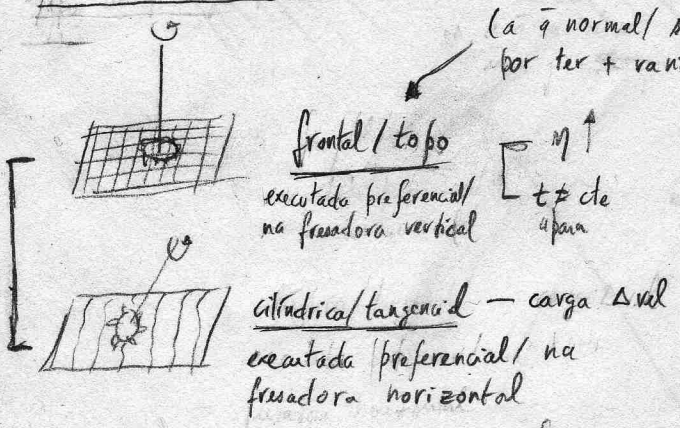 (a q̄ normal/ s
por ter + van
frontal / topo
η ↑
executada preferencial/
t ≠ cte
na fresadora vertical
cilíndrica/tangencial — carga Δvel
executada preferencial/ na
fresadora horizontal